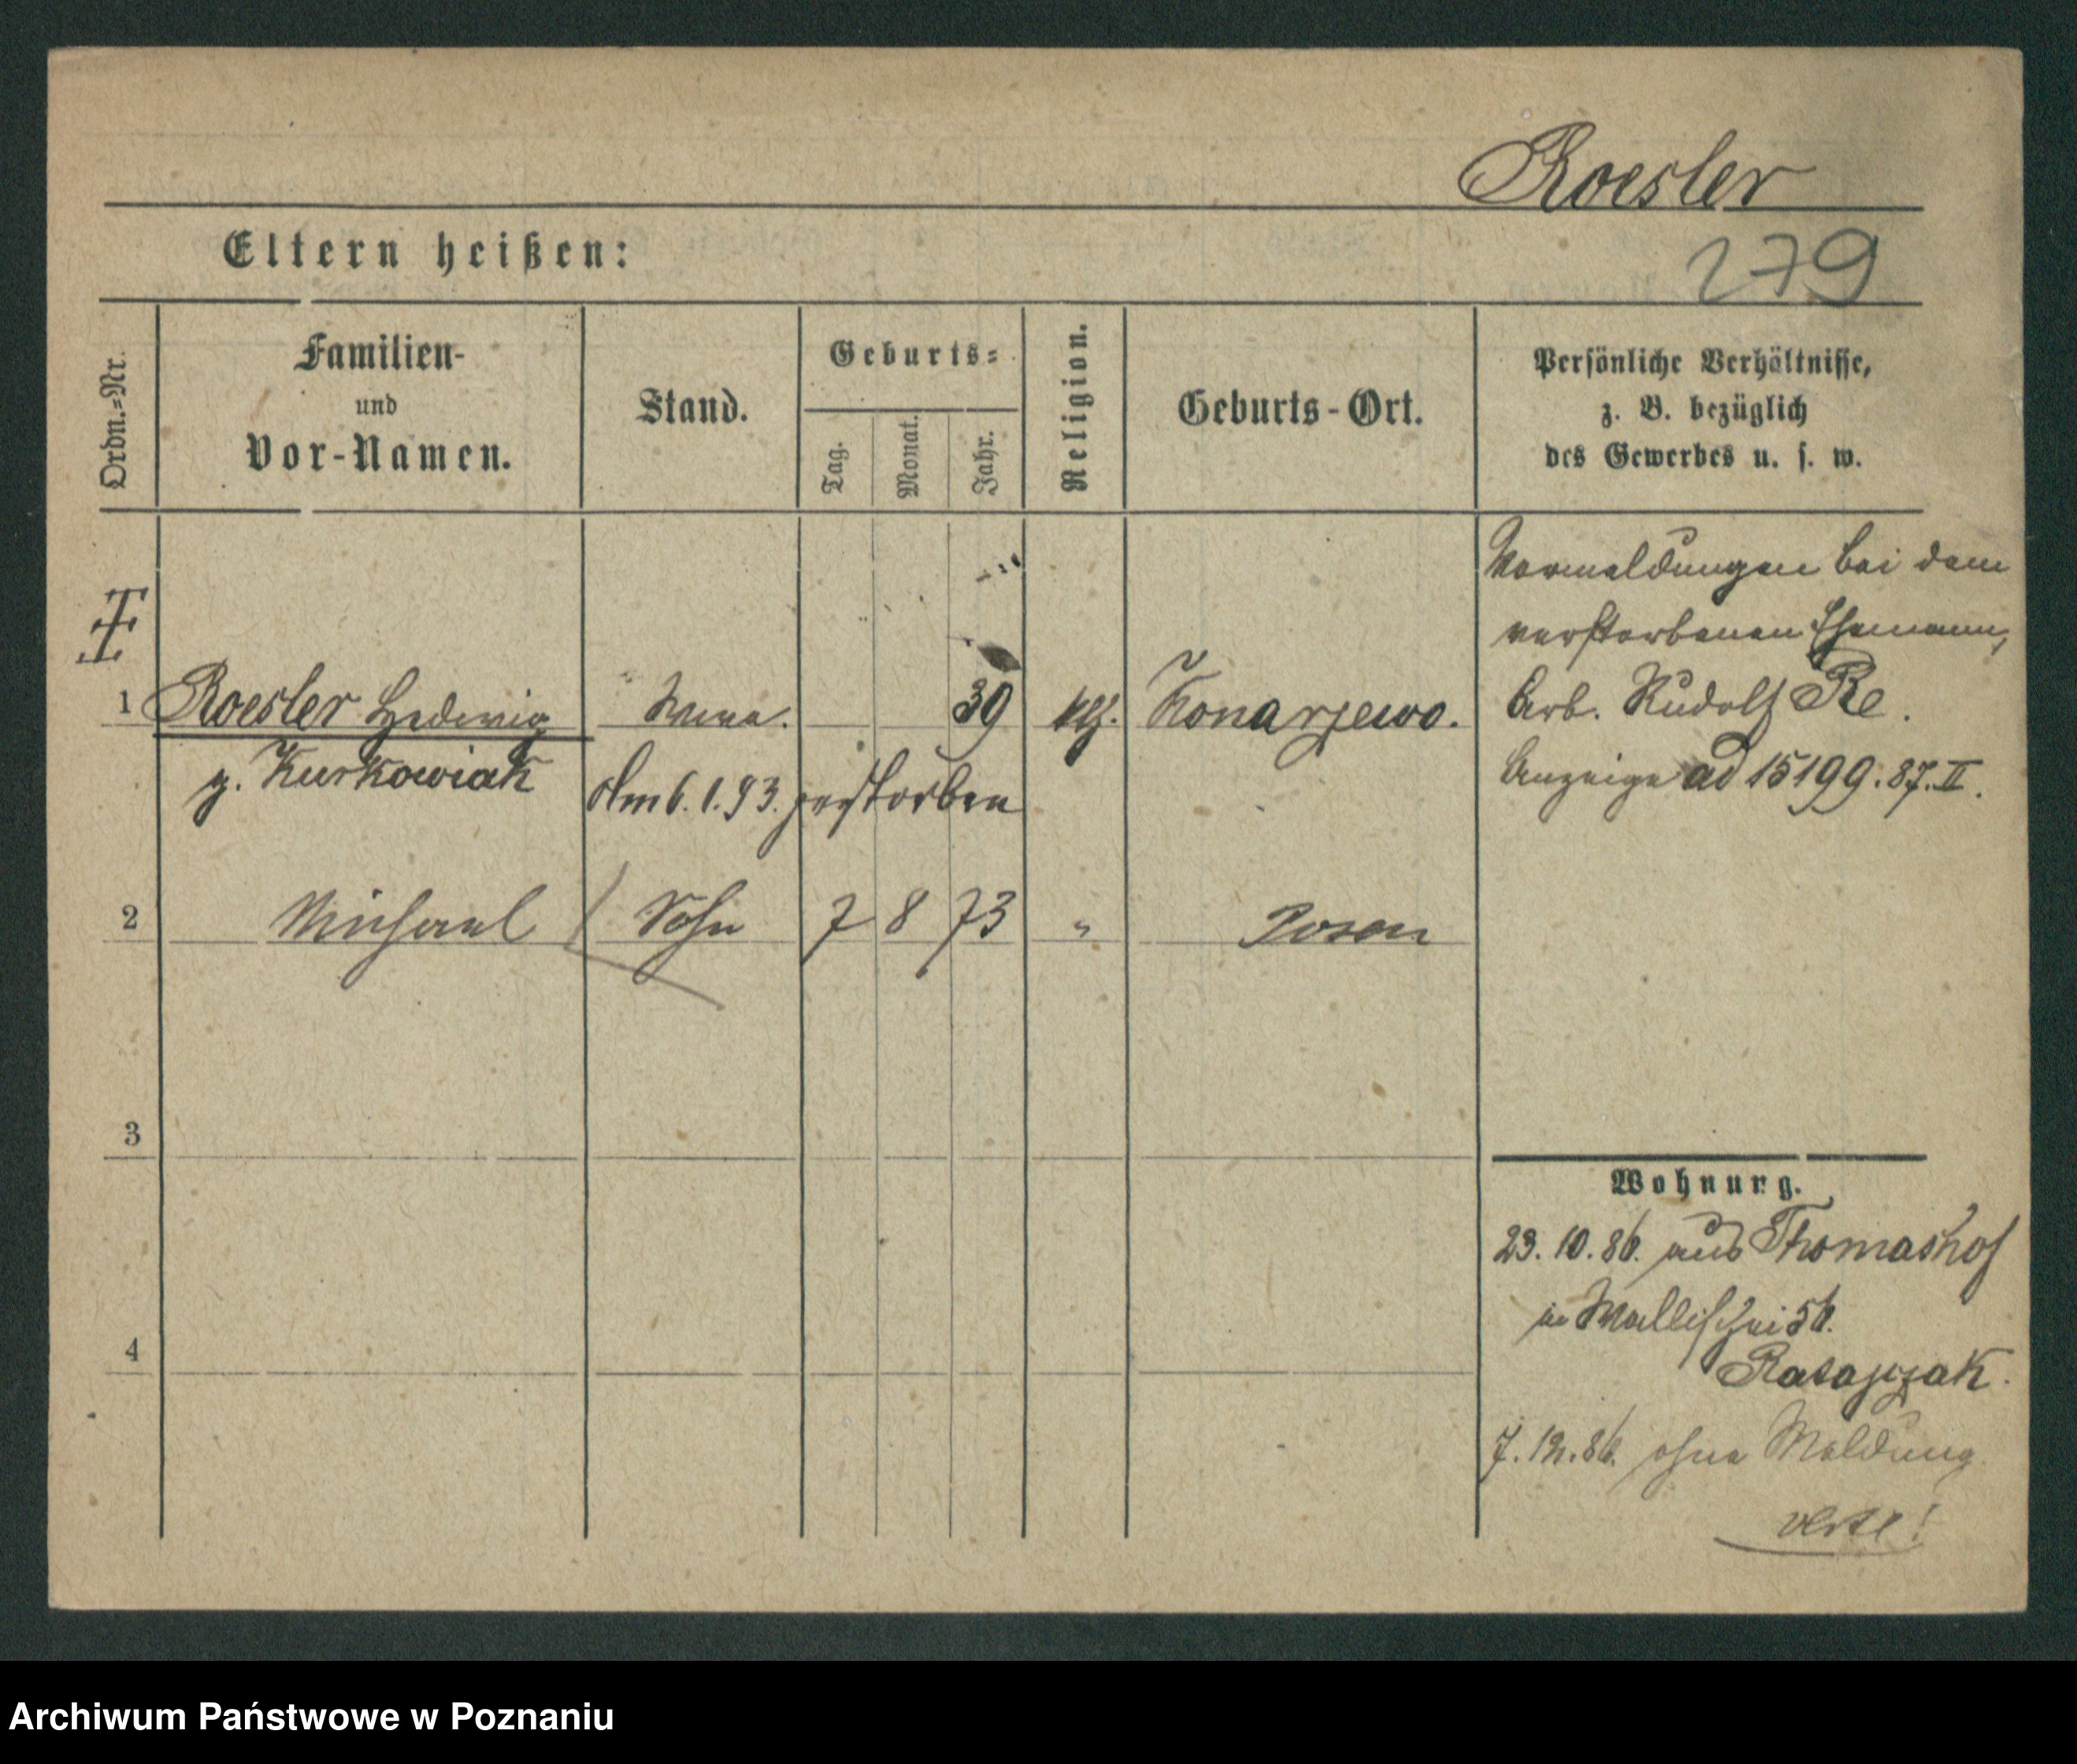 Roesler
279
Eltern heißen:
Ordn.=Nr.
Familien-
und
Vor-Namen.
Stand.
Geburts=
Tag.
Monat.
Jahr.
Religion.
Geburts-Ort.
Persönliche Verhältnisse,
z. B. bezüglich
des Gewerbes u. s. w.
Vormeldungen bei dem
verstorbenen Ehemann,
1 Roesler Hedwig 39 Konarzewo. Arb. Rudolf Re.
g. Kurkowiak
Am 6.1.93. verstorben
Anzeige ad 15199.87.II.
2 Michael Sohn 7 8 73 " Posen
3
4
Wohnung.
23.10.86. aus Thomashof
in Wallischei 56.
Ratajczak.
7.12.86. ohne Meldung
verte!
Archiwum Państwowe w Poznaniu